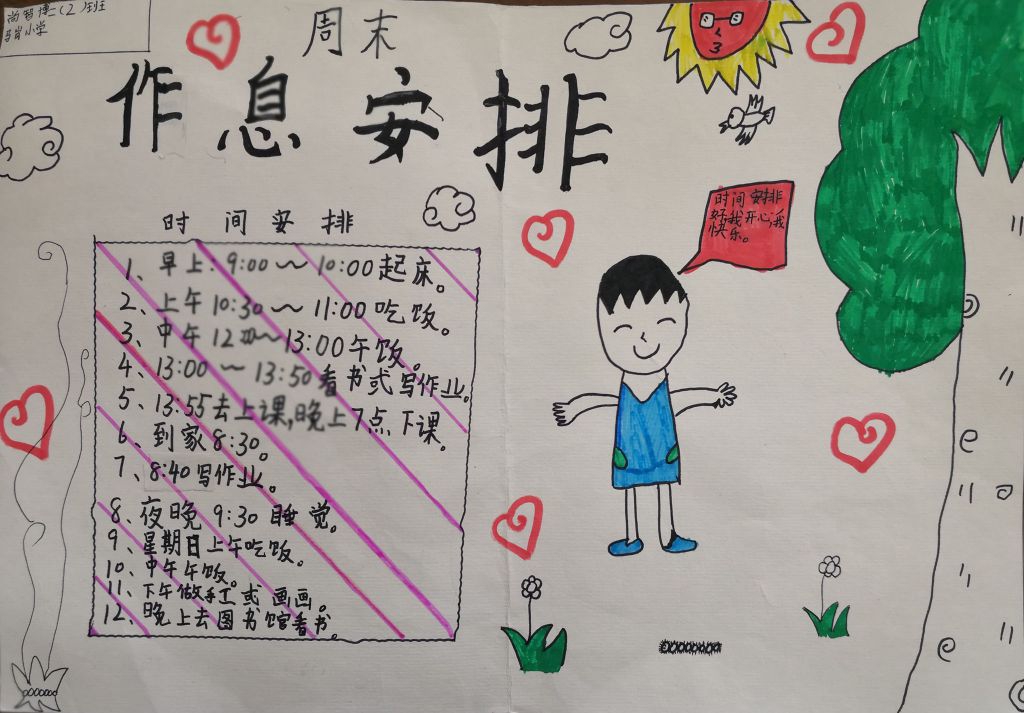 尚智博二(2)班
马岗小学
周末
作息安排
时间安排
1、早上:9:00～10:00起床。
2、上午10:30～11:00吃饭。
3、中午12:00～13:00午饭。
4、13:00～13:50看书或写作业。
5、13:55去上课,晚上7点下课。
6、到家8:30。
7、8:40写作业。
8、夜晚9:30睡觉。
9、星期日上午吃饭。
10、中午午饭。
11、下午做手工或画画。
12、晚上去图书馆看书。
时间安排
好我开心,我
快乐。